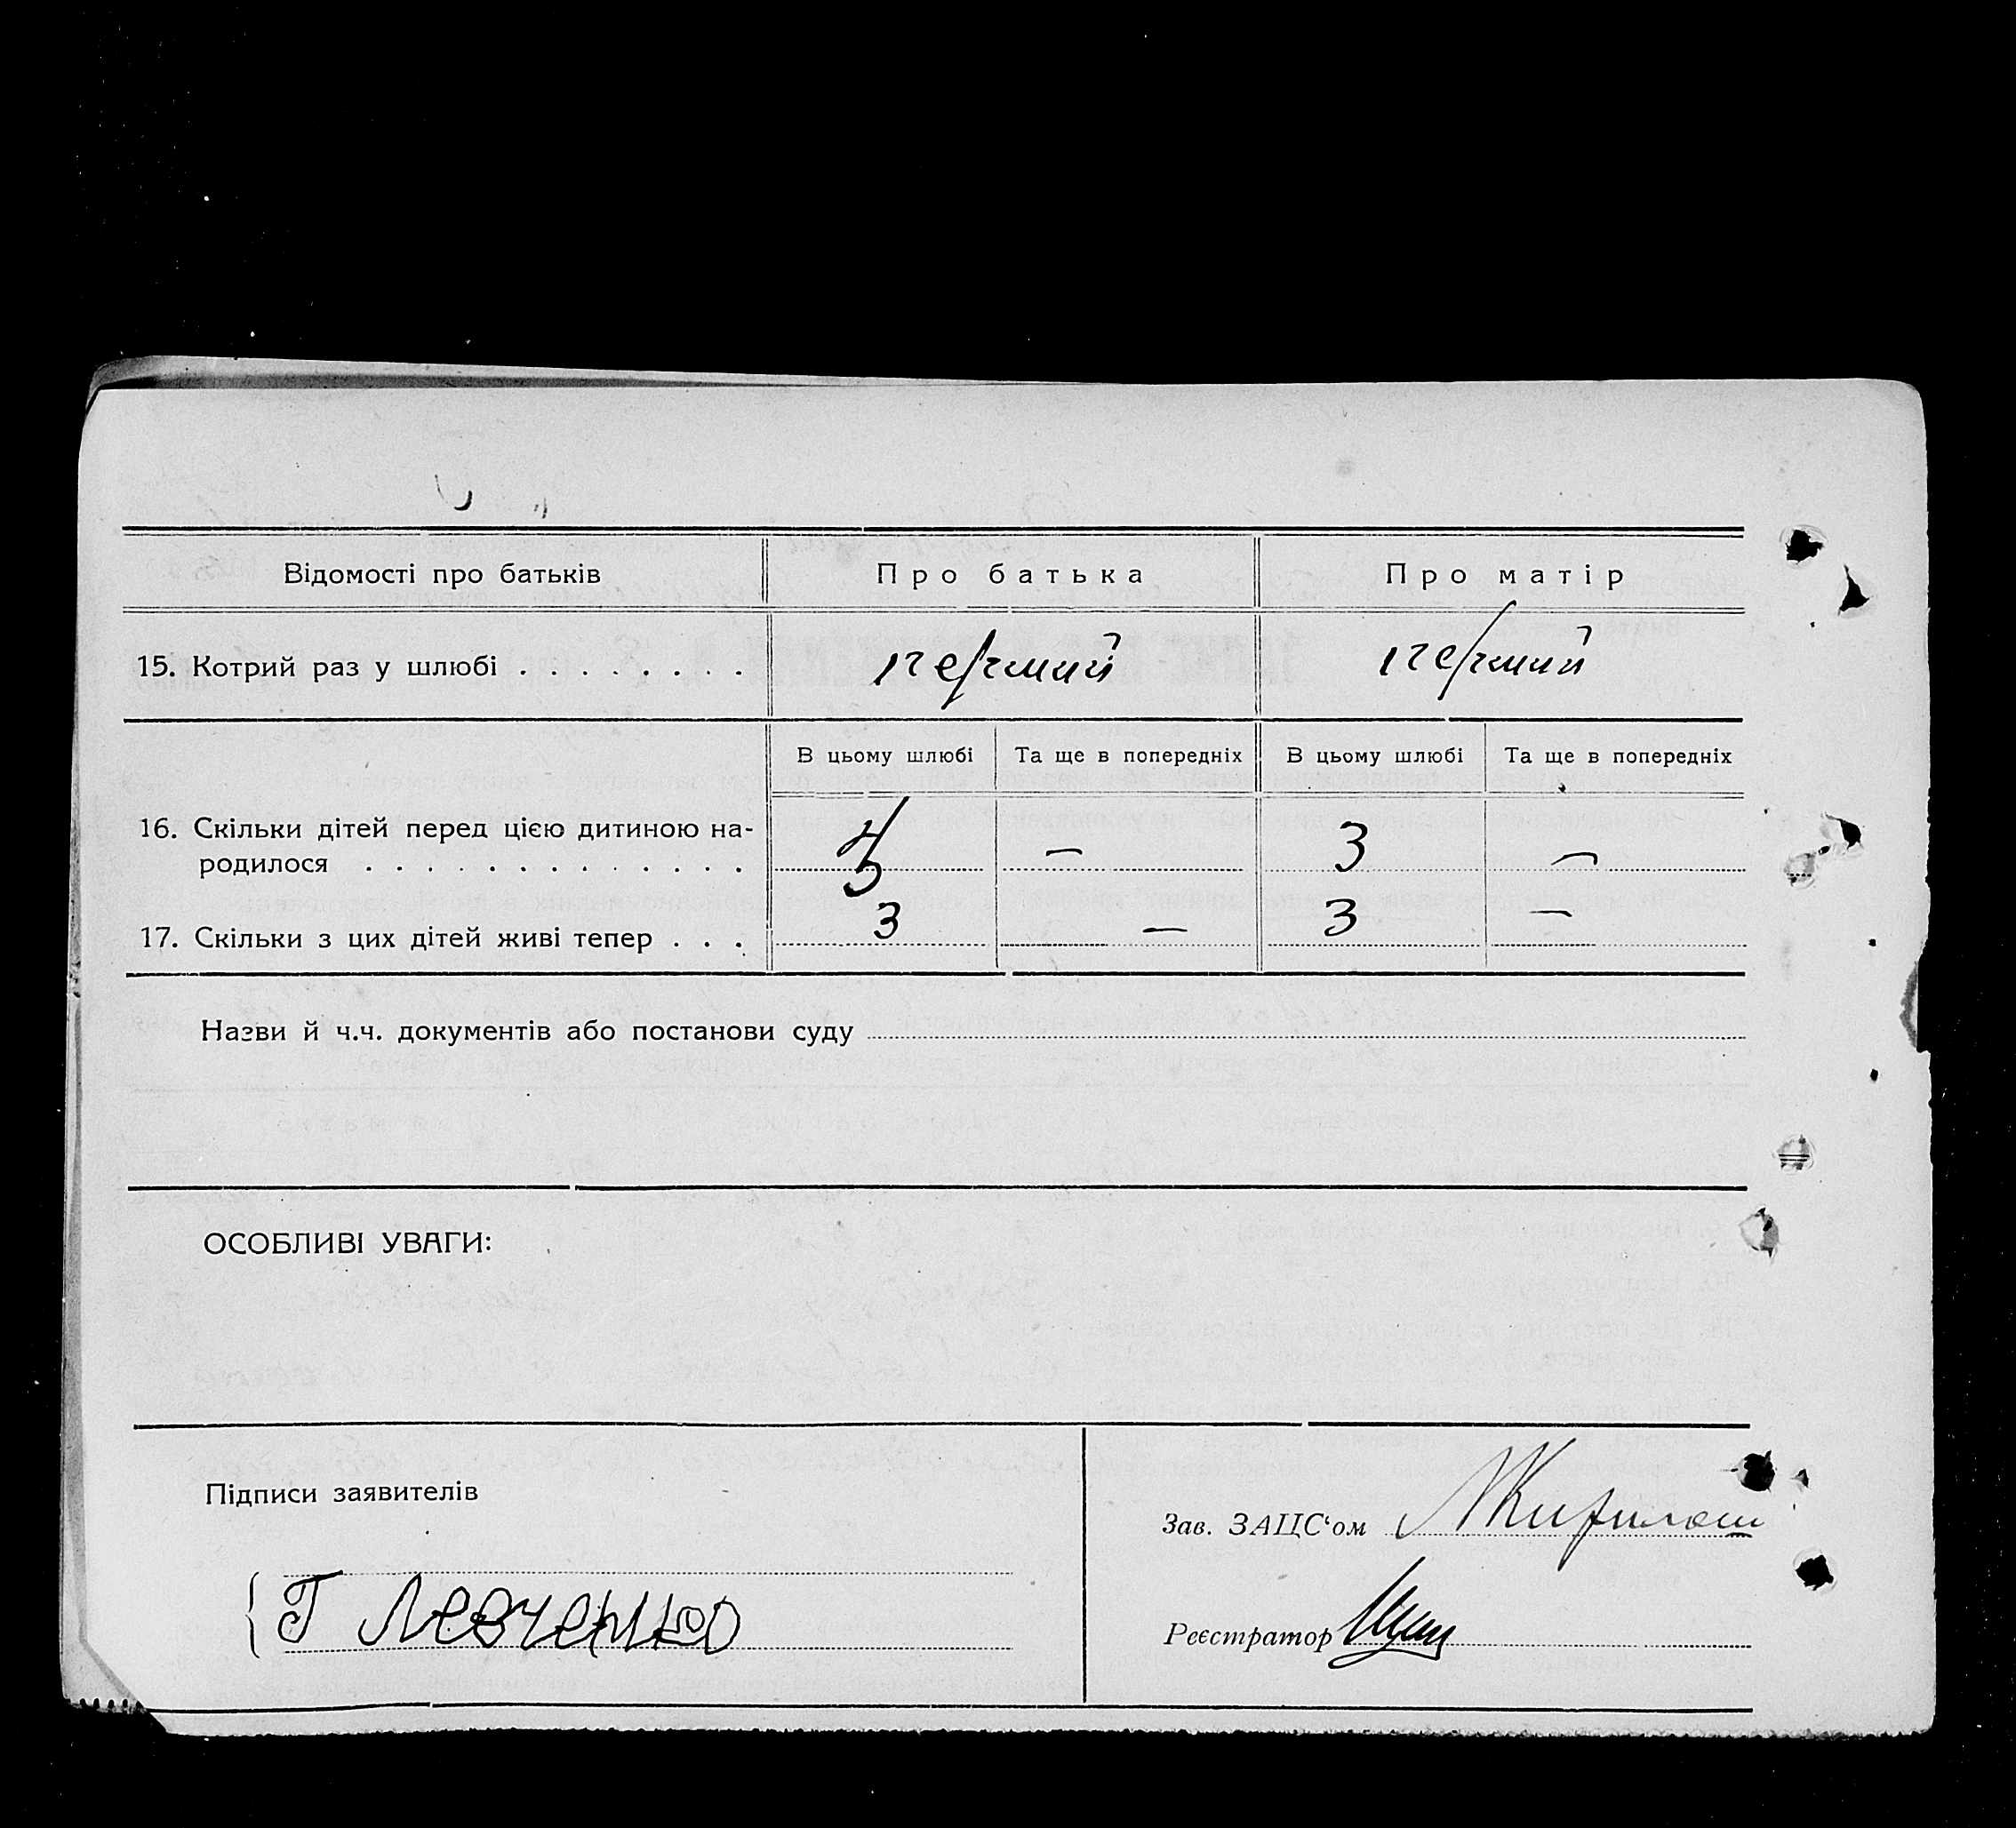 Відомості про батьків Про батька Про матір
15. Котрий раз у шлюбі . . . . . . . . перший перший
В цьому шлюбі Та ще в попередніх В цьому шлюбі Та ще в попередніх
16. Скільки дітей перед цією дитиною на-
родилося . . . . . . . . . . . . . 3 — 3 —
17. Скільки з цих дітей живі тепер . . . 3 — 3 —
Назви й ч.ч. документів або постанови суду
ОСОБЛИВІ УВАГИ:
Підписи заявителів
Зав. ЗАЦС‘ом
Г Левченко
Реєстратор